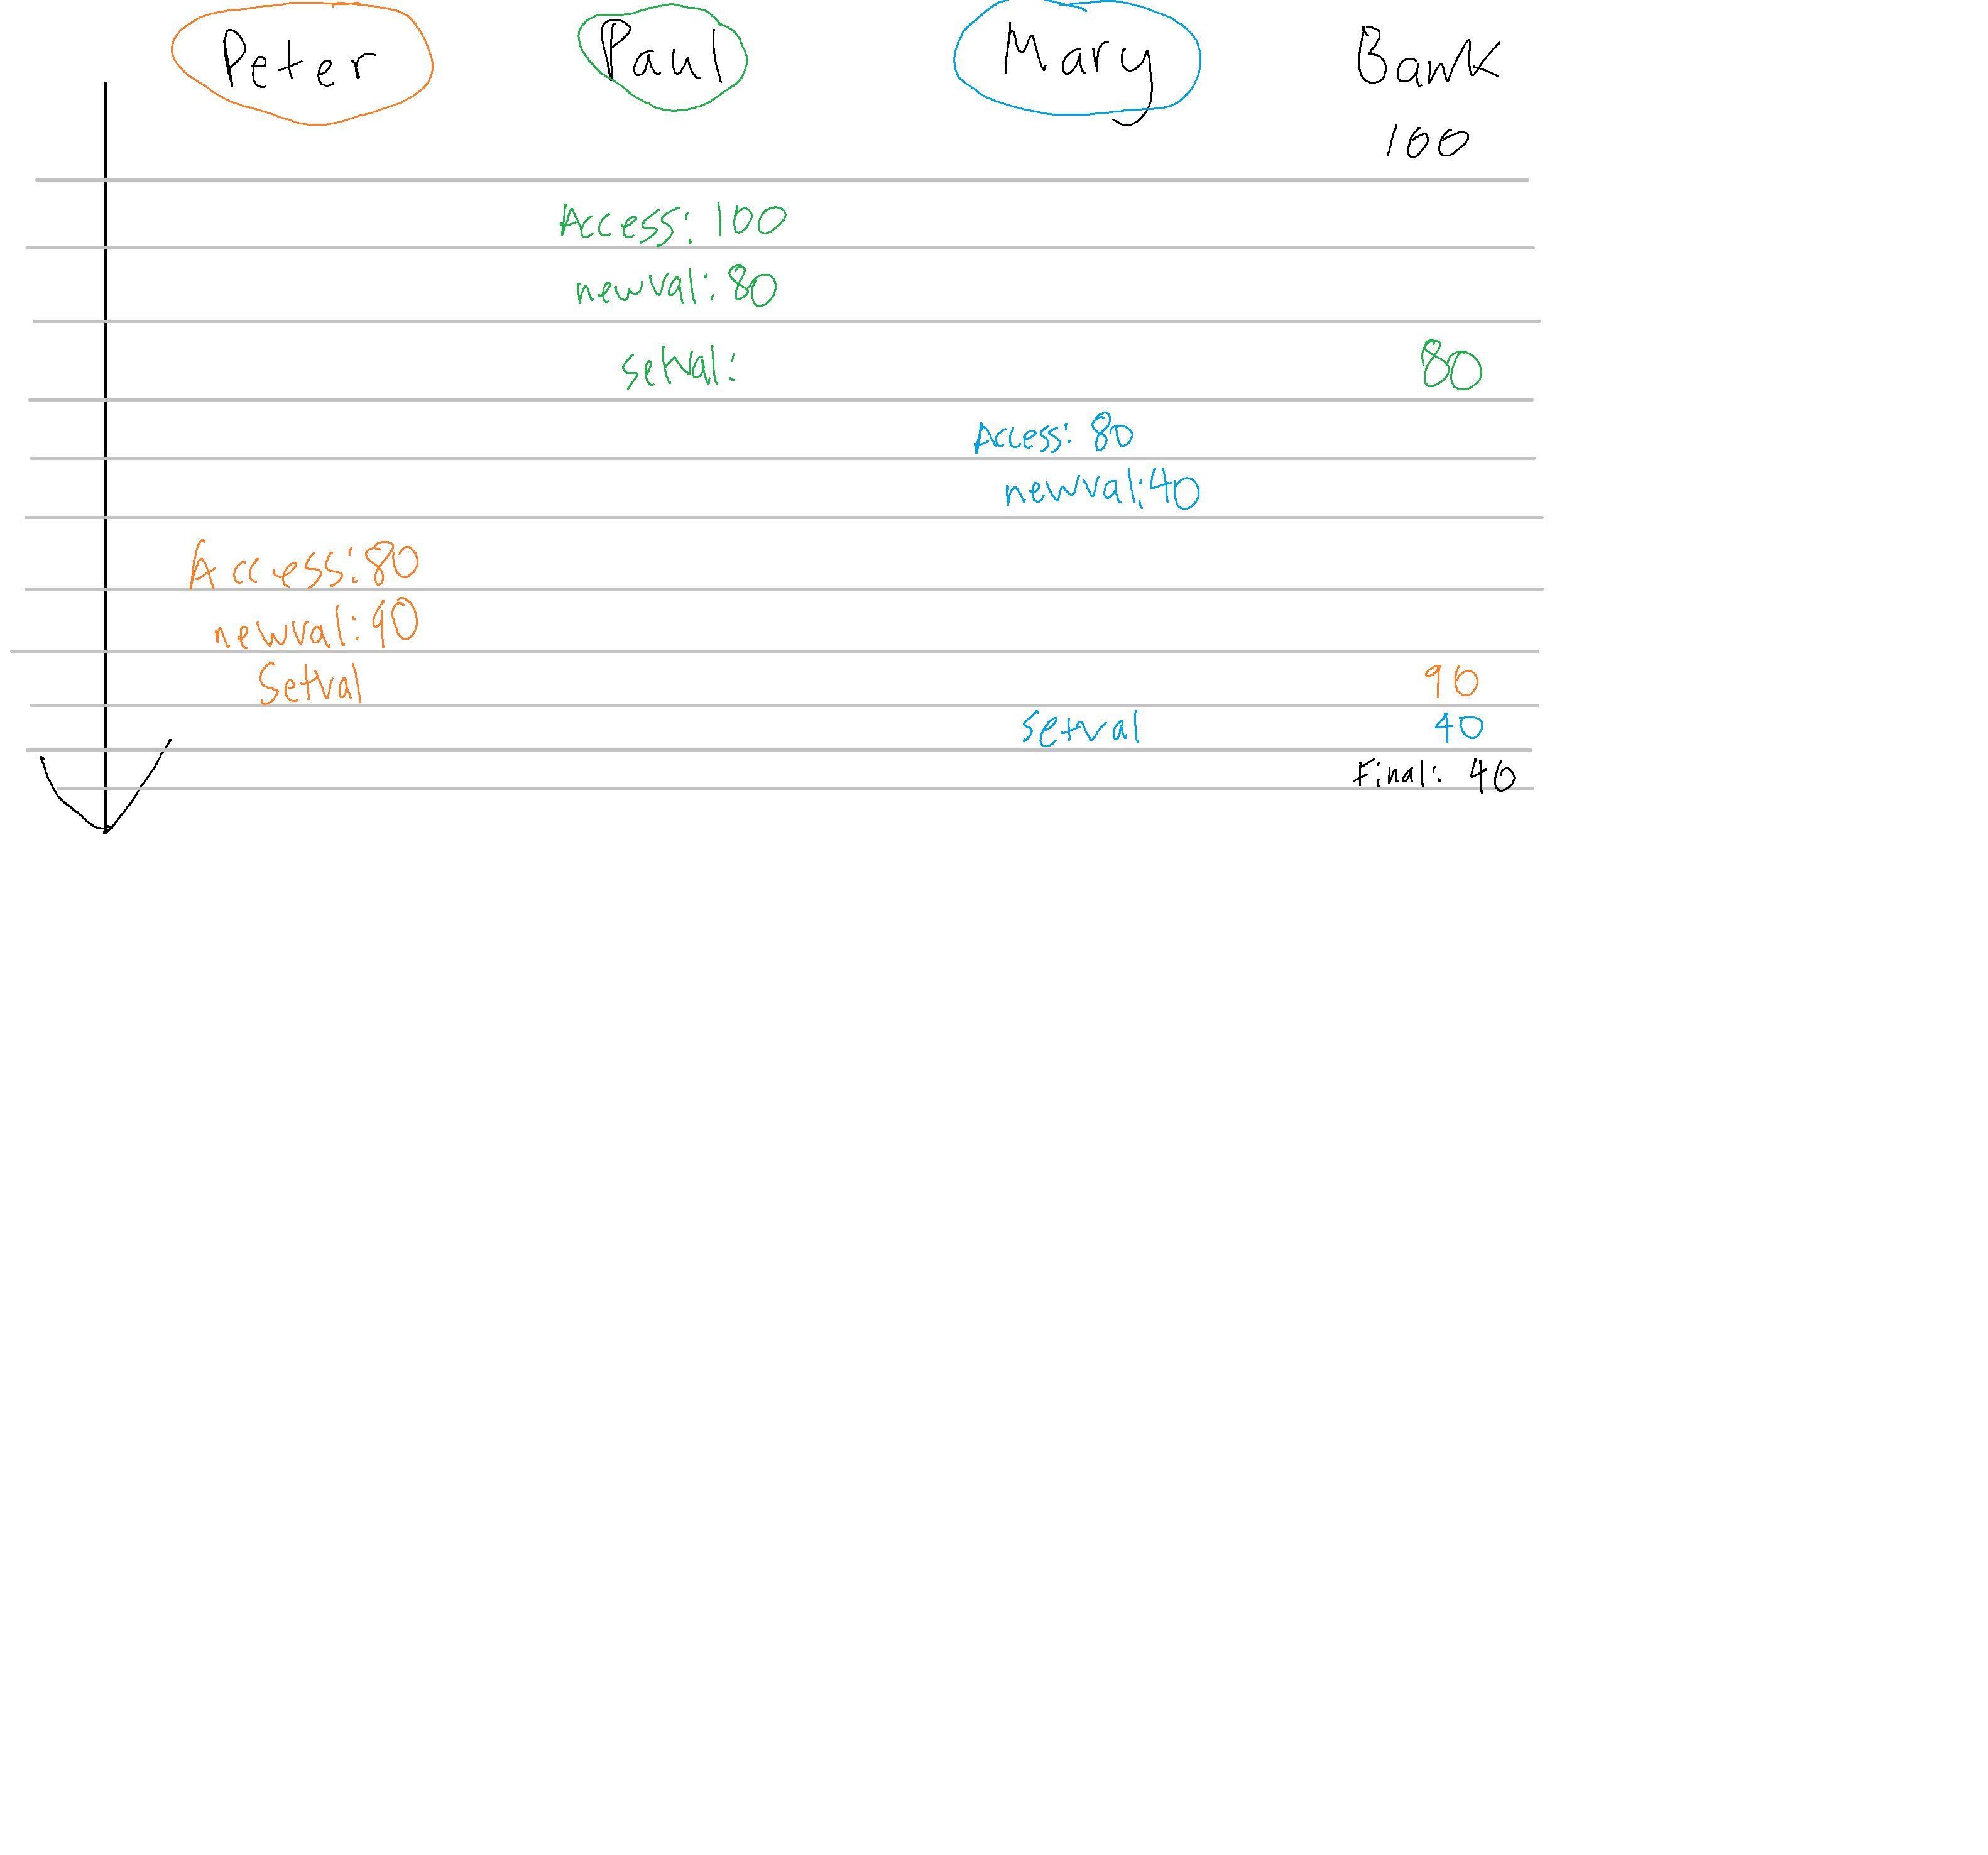 Peter Paul Mary Bank
100
Access: 100
newval: 80
setval: 80
Access: 80
newval: 40
Access: 80
newval: 90
Setval 90
setval 40
Final: 40